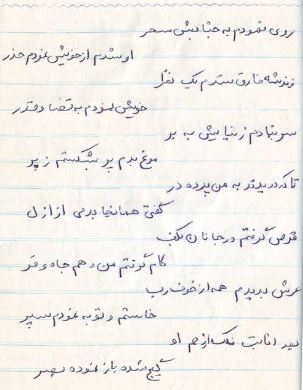 روی نمودم به جنابش سحر
او شدم از خویش نمودم حذر
زندشه فارق شدم یک نفر
خویش نمودم به قضا و قدر
سر بنهادم ز نیایش به بر
مرغ بدم پر شکستم ز پر
تا که درید به من پرده در
گفتی همانجا بدمی از ازل
قرص گرفتم در جانان بکف
گام گرفتم من و هم جاه و فر
عرش بدیدم همه از خوف رب
خاستم و توبه نمودم سپر
بعد انابت از هم او
گیج شده باز نموده بصر